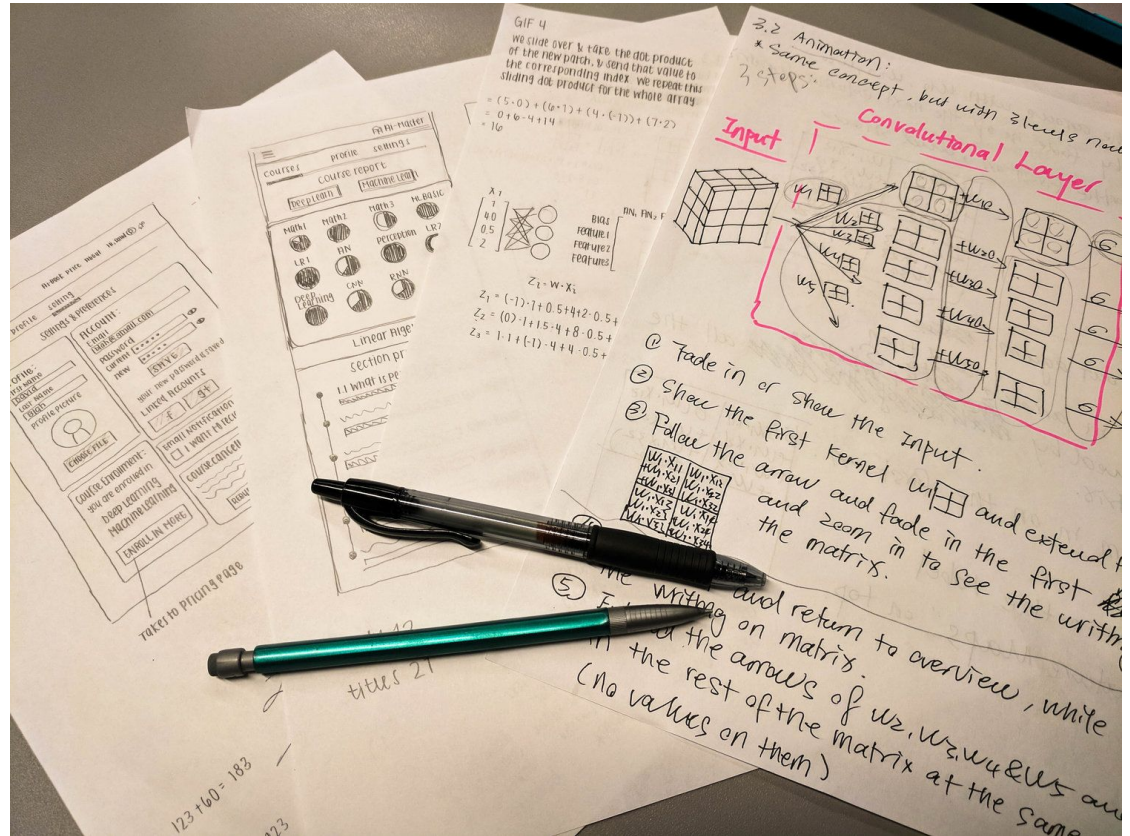 About Price
setting
Profile
Settings & Preferences
Profile:
First Name
Last Name
Profile Picture
CHOOSE FILE
Account:
Email
Password
current
new
SAVE
your new password is saved
Linked Accounts
Email Notification
Course Enrolment:
you are enrolled in
Deep Learning
Machine Learning
ENROLL IN MORE
Takes to pricing page
123 + 60 = 183
courses
profile
settings
course report
Deep Learn
Machine Lear
Math1
Math2
Math3
ML Basic
LR1
ANN
Perceptron
LR2
Deep
Learning
CNN
RNN
Linear Alge
section pr
1.1 What is
titles 21
GIF 4
We slide over & take the dot product
of the new patch, & send that value to
the corresponding index. We repeat this
sliding dot product for the whole array.
= (5·0) + (6·1) + (4·(-1)) + (7·2)
= 0+6-4+14
= 16
1
4.0
0.5
2
Bias
Feature1
Feature2
Feature3
Z₁ = (-1)·1+0.5·4+2·0.5+
Z₂ = (0)·1+1.5·4+8·0.5+
Z₃ = 1·1+(-1)·4+4·0.5+
3.2 Animation:
* Same concept, but with 3 levels now
3 steps:
Input
Convolutional Layer
W₁
W₂
W₃
W₄
W₅
+W₁₀
+W₂₀
+W₃₀
+W₄₀
+W₅₀
① Fade in or show the Input.
② Show the first kernel W₁ and extend
③ Follow the arrow and fade in the first
and zoom in to see the
the matrix.
and return to overview, while
the writing on matrix.
⑤
the arrows of W₂, W₃, W₄ & W₅
in the rest of the matrix at the same
(no values on them)